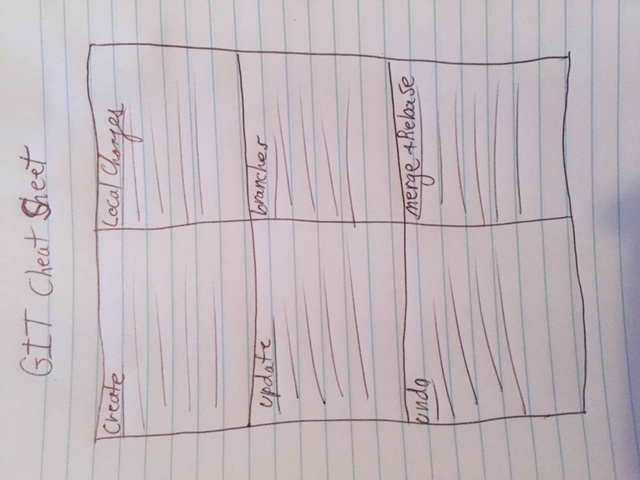 GIT Cheat Sheet
Create
Local Changes
update
branches
undo
merge + Rebase